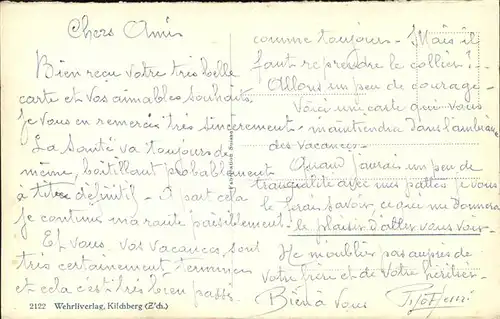 Chers Amis
Bien reçu votre très belle
carte et vos aimables souhaits.
Je vous en remercie très sincèrement.
La Santé va toujours de
même, boitillant probablement
à titre définitif - A part cela
je continue ma route paisiblement
Et vous, vos vacances, sont
très certainement terminées
et cela c'est très bien passé
comme toujours - Mais il
faut reprendre le collier !
Allons un peu de courage -
Voici une carte qui vous
maintiendra dans l'ambiance
des vacances -
Quand j'aurai un peu de
tranquilité avec mes pattes je vous
le ferai savoir, ce qui me donnera
le plaisir d'aller vous voir -
Ne m'oubliez pas auprès de
votre frère et de votre héritier -
Bien à Vous
2122 Wehrliverlag, Kilchberg (Zch.)